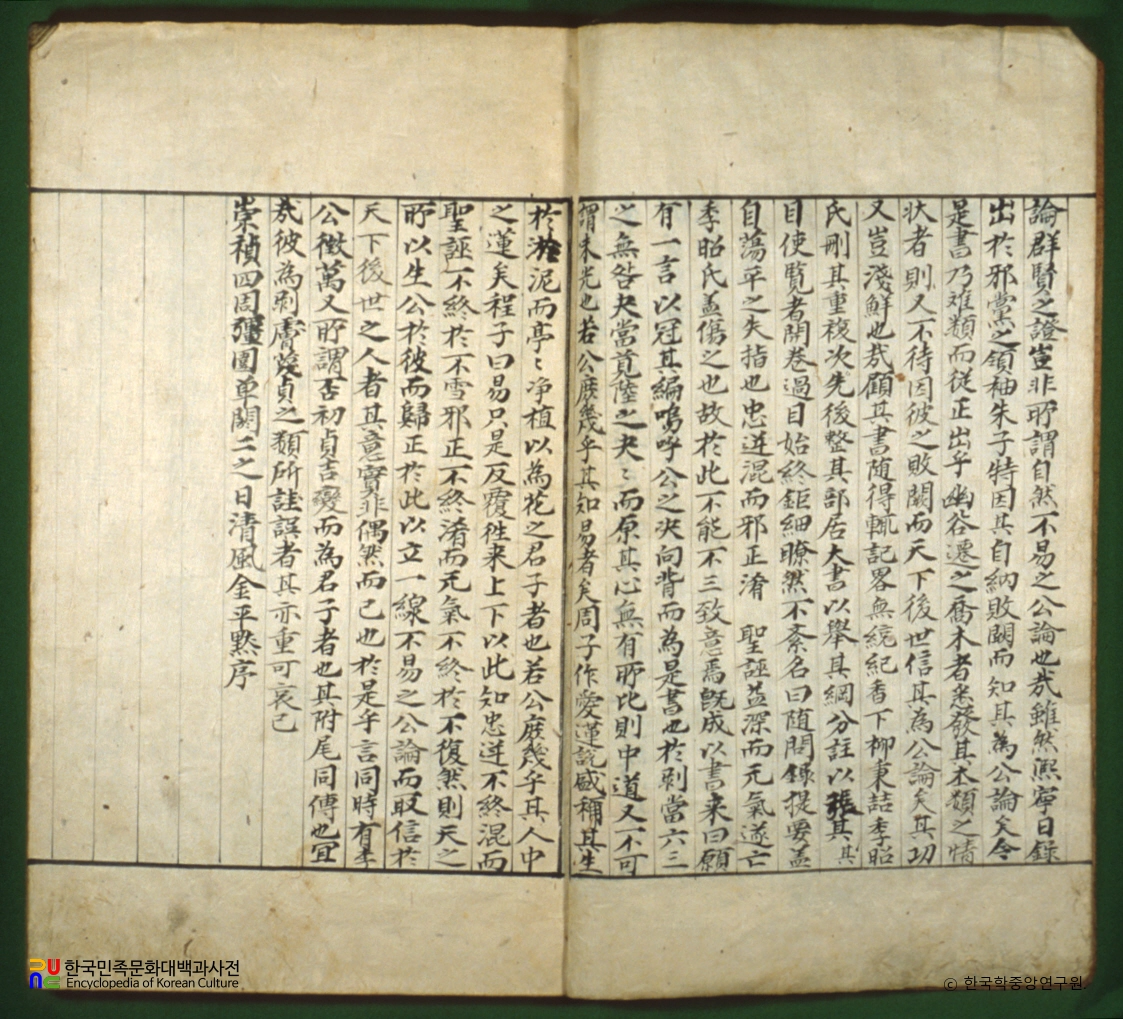 論群賢之證豈非所謂自然不易之公論也哉雖然熙寧日録
出於邪黨之領袖朱子特因其自納敗闕而知其為公論矣今
是書乃难類而從正出乎幽谷遷之喬木者悉發其本類之情
状者則又不待因彼之敗闕而天下後世信其為公論矣其功
又豈淺鮮也哉顧其書随得輒記畧無統紀香下柳東喆李昭
氏刪其重複次先後整其部居大書以舉其綱分註以張其
目使覧者開卷過目始終鉅細瞭然不紊名曰随聞録提要盖
自蕩平之失指也忠逆混而邪正淆 聖誣益深而元氣遂亡
季昭氏盖傷之也故於此不能不三致意焉旣成以書来曰願
有一言以冠其編嗚呼公之决向背而為是書也於剥當六三
之無咎夬當莧陸之夬〻而原其心無有所比則中道又不可
謂未光也若公庶幾乎其知易者矣周子作愛蓮説盛稱其生
於淤泥而亭〻净植以為花之君子者也若公庶幾乎其人中
之蓮矣程子曰易只是反覆徃来上下以此知忠逆不終混而
聖誣不終於不雪邪正不終淆而元氣不終於不復然則天之
所以生公於彼而歸正於此以立一線不易之公論而取信於
天下後世之人者其意實非偶然而已也於是乎言同時有李
公徴萬又所謂否初貞吉變而為君子者也其附尾同傳也宜
哉彼為剥膚蔑貞之類所詿誤者其亦重可哀已
崇禎四周彊圉单閼二之日清風金平黙序
한국민족문화대백과사전
Encyclopedia of Korean Culture
© 한국학중앙연구원